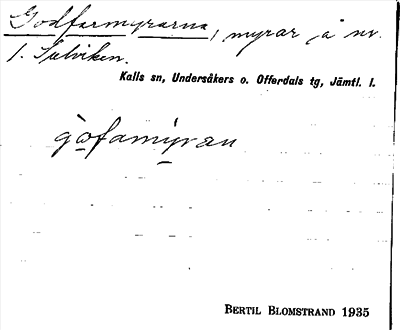 Godfarmyrarna, myrar å nv.
l. Sulviken.
Kalls sn, Undersåkers o. Offerdals tg, Jämtl. l.
gofamyran
BERTIL BLOMSTRAND 1935